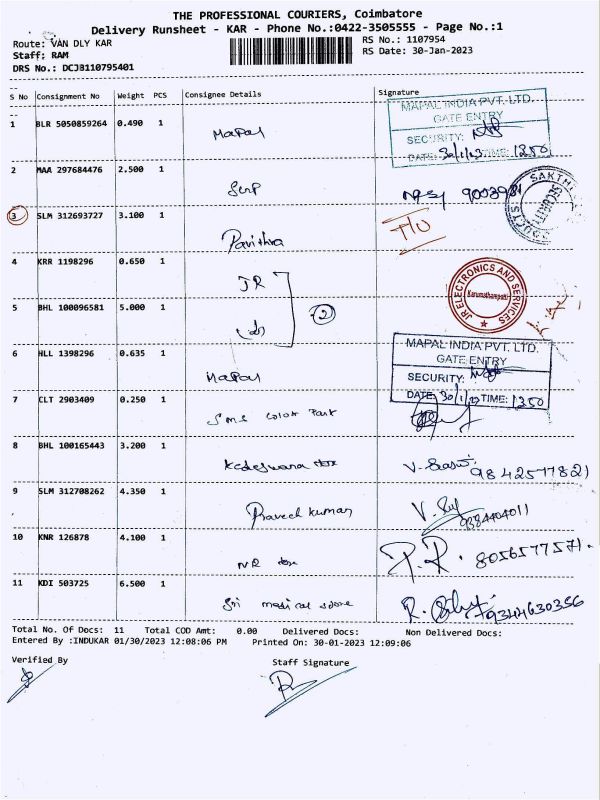 THE PROFESSIONAL COURIERS, Coimbatore
Delivery Runsheet - KAR - Phone No.:0422-3505555 - Page No.:1
Route: VAN DLY KAR
RS No.: 1107954
Staff: RAM
RS Date: 30-Jan-2023
DRS No.: DCJB110795401
S No Consignment No Weight PCS Consignee Details Signature
1 BLR 5050859264 0.490 1 Mapal
MAPAL INDIA PVT. LTD.
GATE ENTRY
SECURITY:
DATE: 30/1/23 TIME: 1350
2 MAA 297684476 2.500 1
SAKTHI
SECURITY
3 SLM 312693727 3.100 1 Pavithra
4 KRR 1198296 0.650 1 JR
JR ELECTRONICS AND SERVICES
Karumathampatti
5 BHL 100096581 5.000 1 (2)
6 HLL 1398296 0.635 1 Mapal
MAPAL INDIA PVT. LTD.
GATE ENTRY
SECURITY:
DATE: 30/1/23 TIME: 1350
7 CLT 2903409 0.250 1 SMS
8 BHL 100165443 3.200 1 9842577821
9 SLM 312708262 4.350 1 Praveen Kumar 9384404011
10 KNR 126878 4.100 1 8056577571.
11 KDI 503725 6.500 1 Sri medical store 9344630356
Total No. Of Docs: 11 Total COD Amt: 0.00 Delivered Docs: Non Delivered Docs:
Entered By :INDUKAR 01/30/2023 12:08:06 PM Printed On: 30-01-2023 12:09:06
Verified By Staff Signature